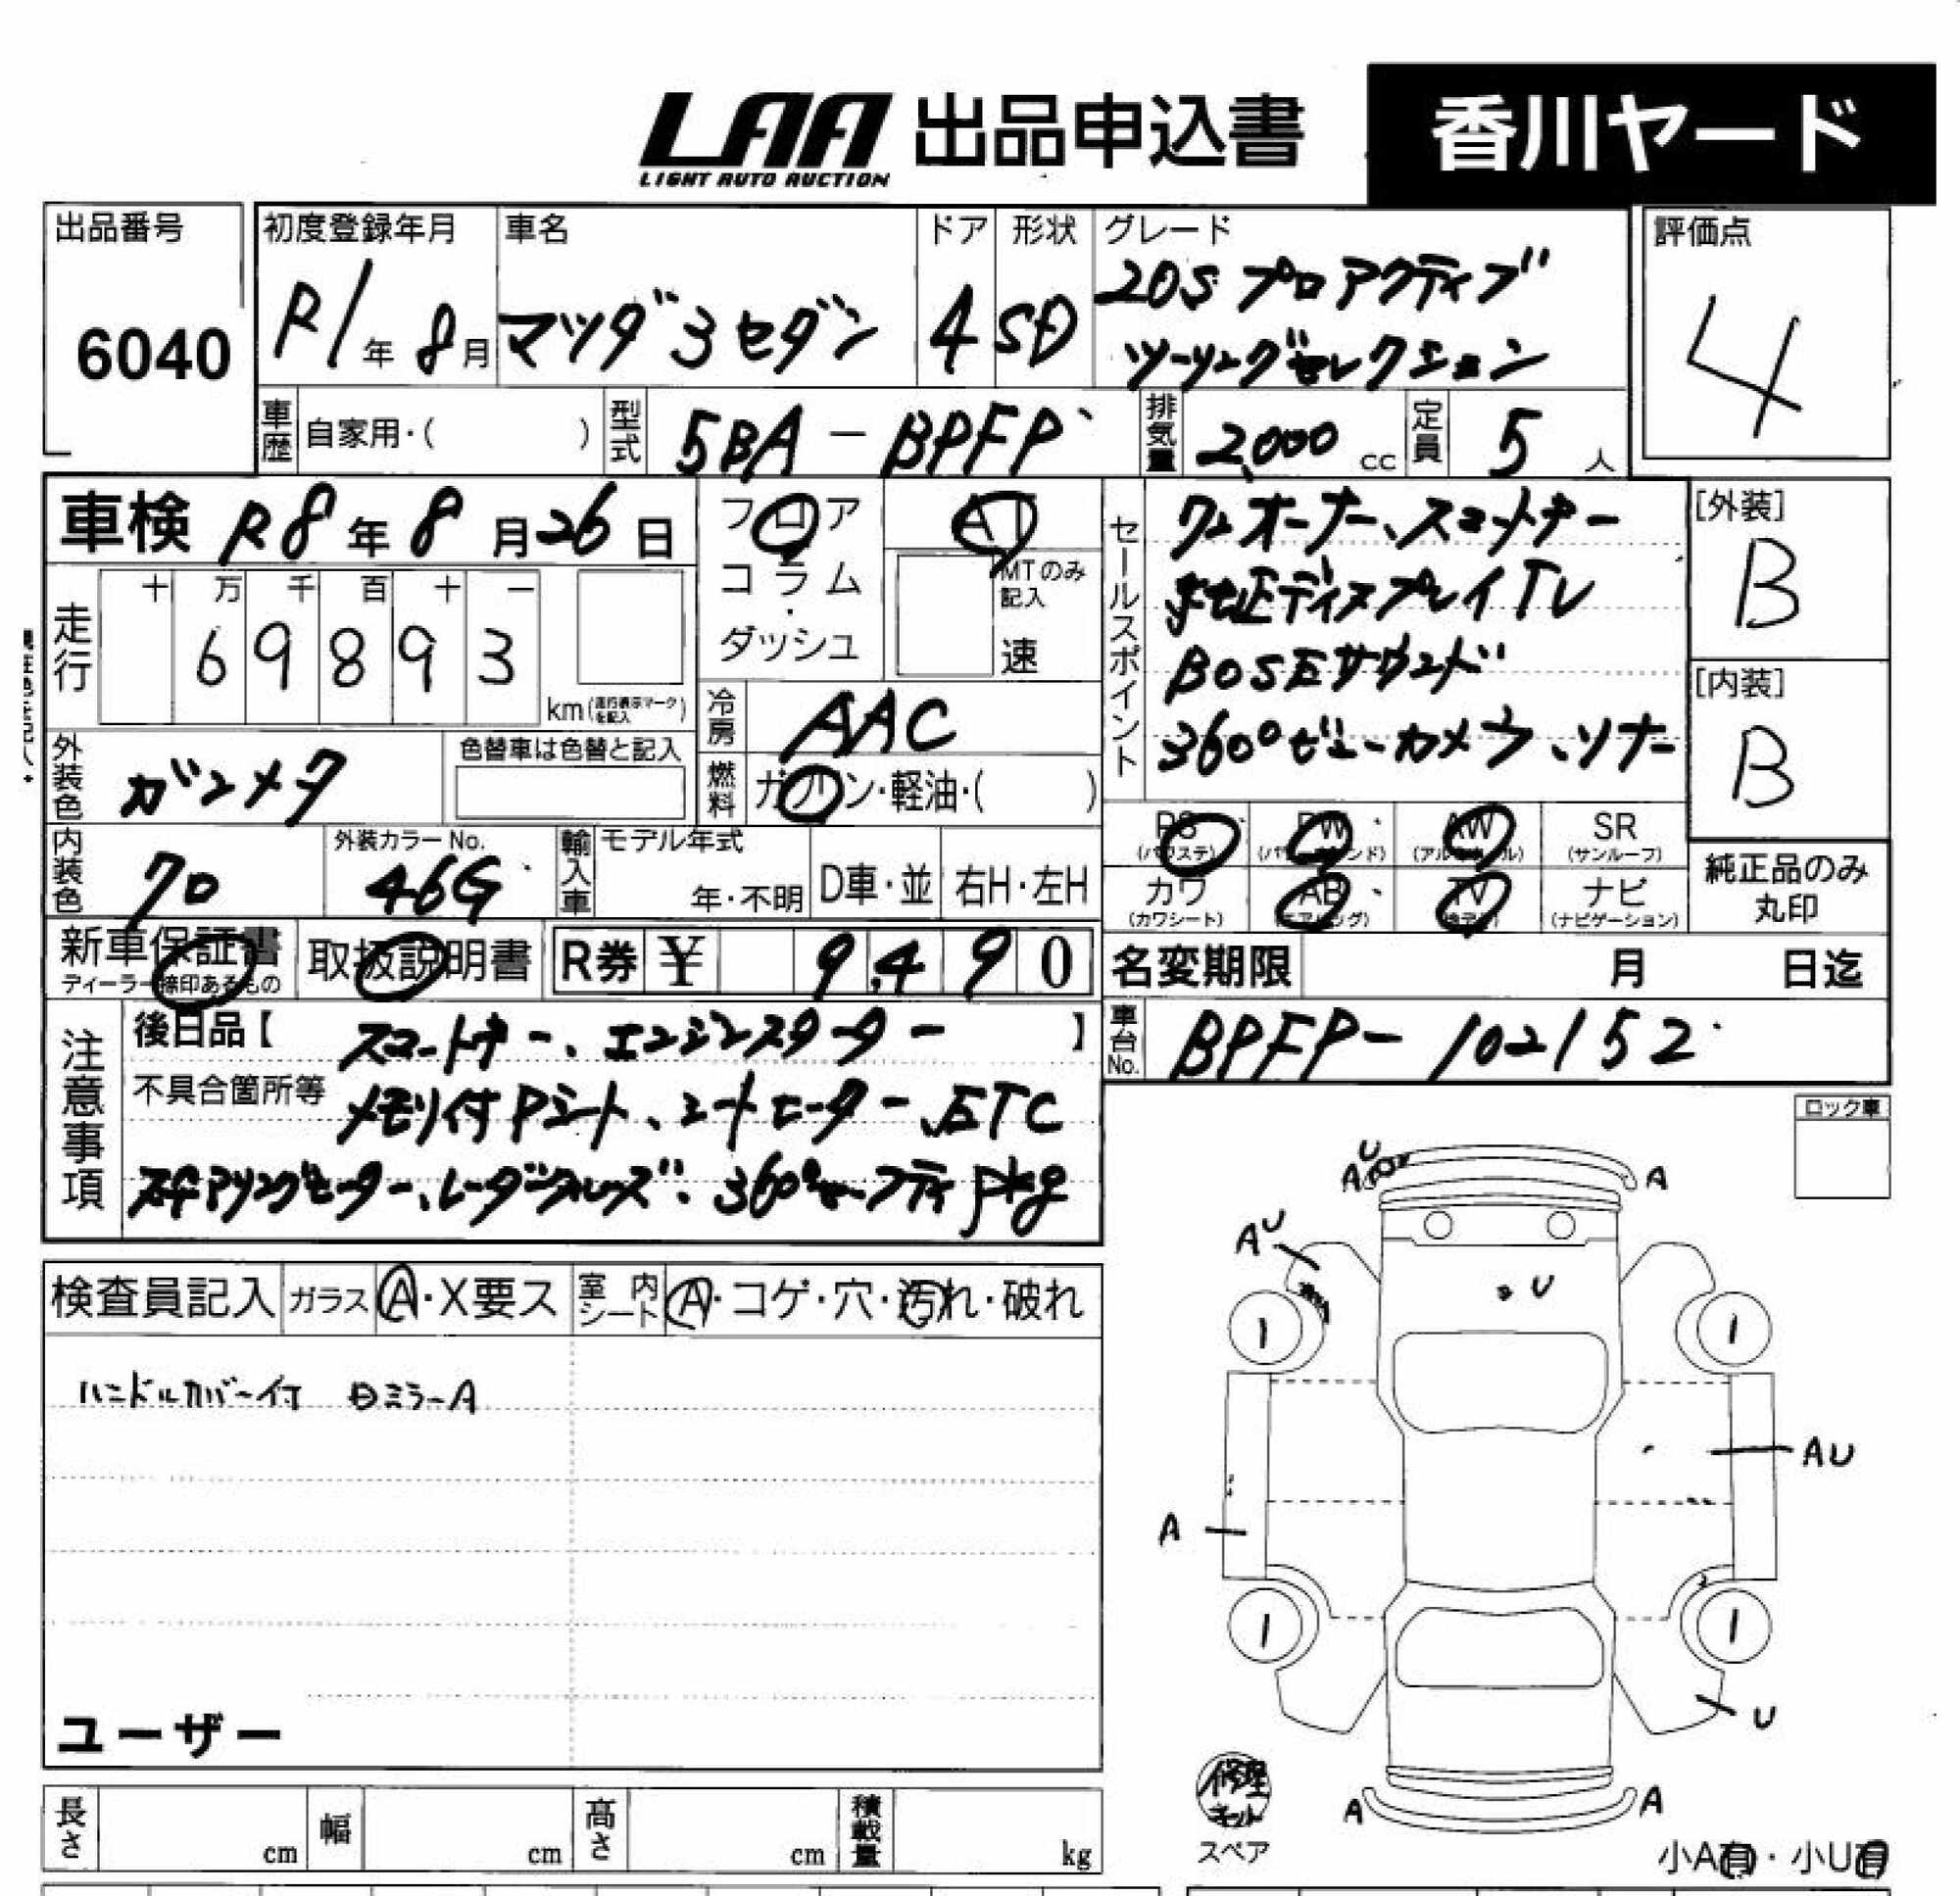 LAA 出品申込書 香川ヤード
LIGHT AUTO AUCTION
出品番号 初度登録年月 車名 ドア 形状 グレード 評価点
6040 R1年8月 マツダ3セダン 4 SD 20S プロアクティブ 4
ツーリングセレクション
車歴 自家用・( ) 型式 5BA-BPFP 排気量 2,000 cc 定員 5人
車検 R8年8月26日 フロア AT
コラム・ダッシュ MTのみ記入 速
セールスポイント ワンオーナー、スマートキー
純正ディスプレイTV
BOSEサウンド
360°ビューカメラ、ソナー
[外装] B
[内装] B
走行 十 万 千 百 十 一
69893 km(走行表示マークを記入)
冷房 AAC
外装色 ガンメタ 色替車は色替と記入 燃料 ガソリン・軽油・( )
内装色 クロ 外装カラーNo. 46G 輸入車 モデル年式 年・不明 D車・並 右H・左H
PS (パワステ) PW (パワーウインド) AW (アルミホイル) SR (サンルーフ)
カワ (カワシート) AB (エアバッグ) TV ナビ (ナビゲーション)
純正品のみ丸印
新車保証書 取扱説明書 R券 ¥ 9,490 名変期限 月 日迄
ディーラー捺印あるもの
注意事項 後日品【 スマートキー、エンジンスターター 】 車台No. BPFP-102152
不具合箇所等 メモリ付Pシート、シートヒーター、ETC
ステアリングヒーター、レーダークルーズ、360°セーフティPkg
ロック車
検査員記入 ガラス A・X要ス 室内シート A・コゲ・穴・汚れ・破れ
ハンドルカバー付 ミラーA
U
A A
AU
U
1 1
AU
A
1 1
U
ユーザー
修理キット
A A
スペア 小A有・小U有
長さ cm 幅 cm 高さ cm 積載量 kg